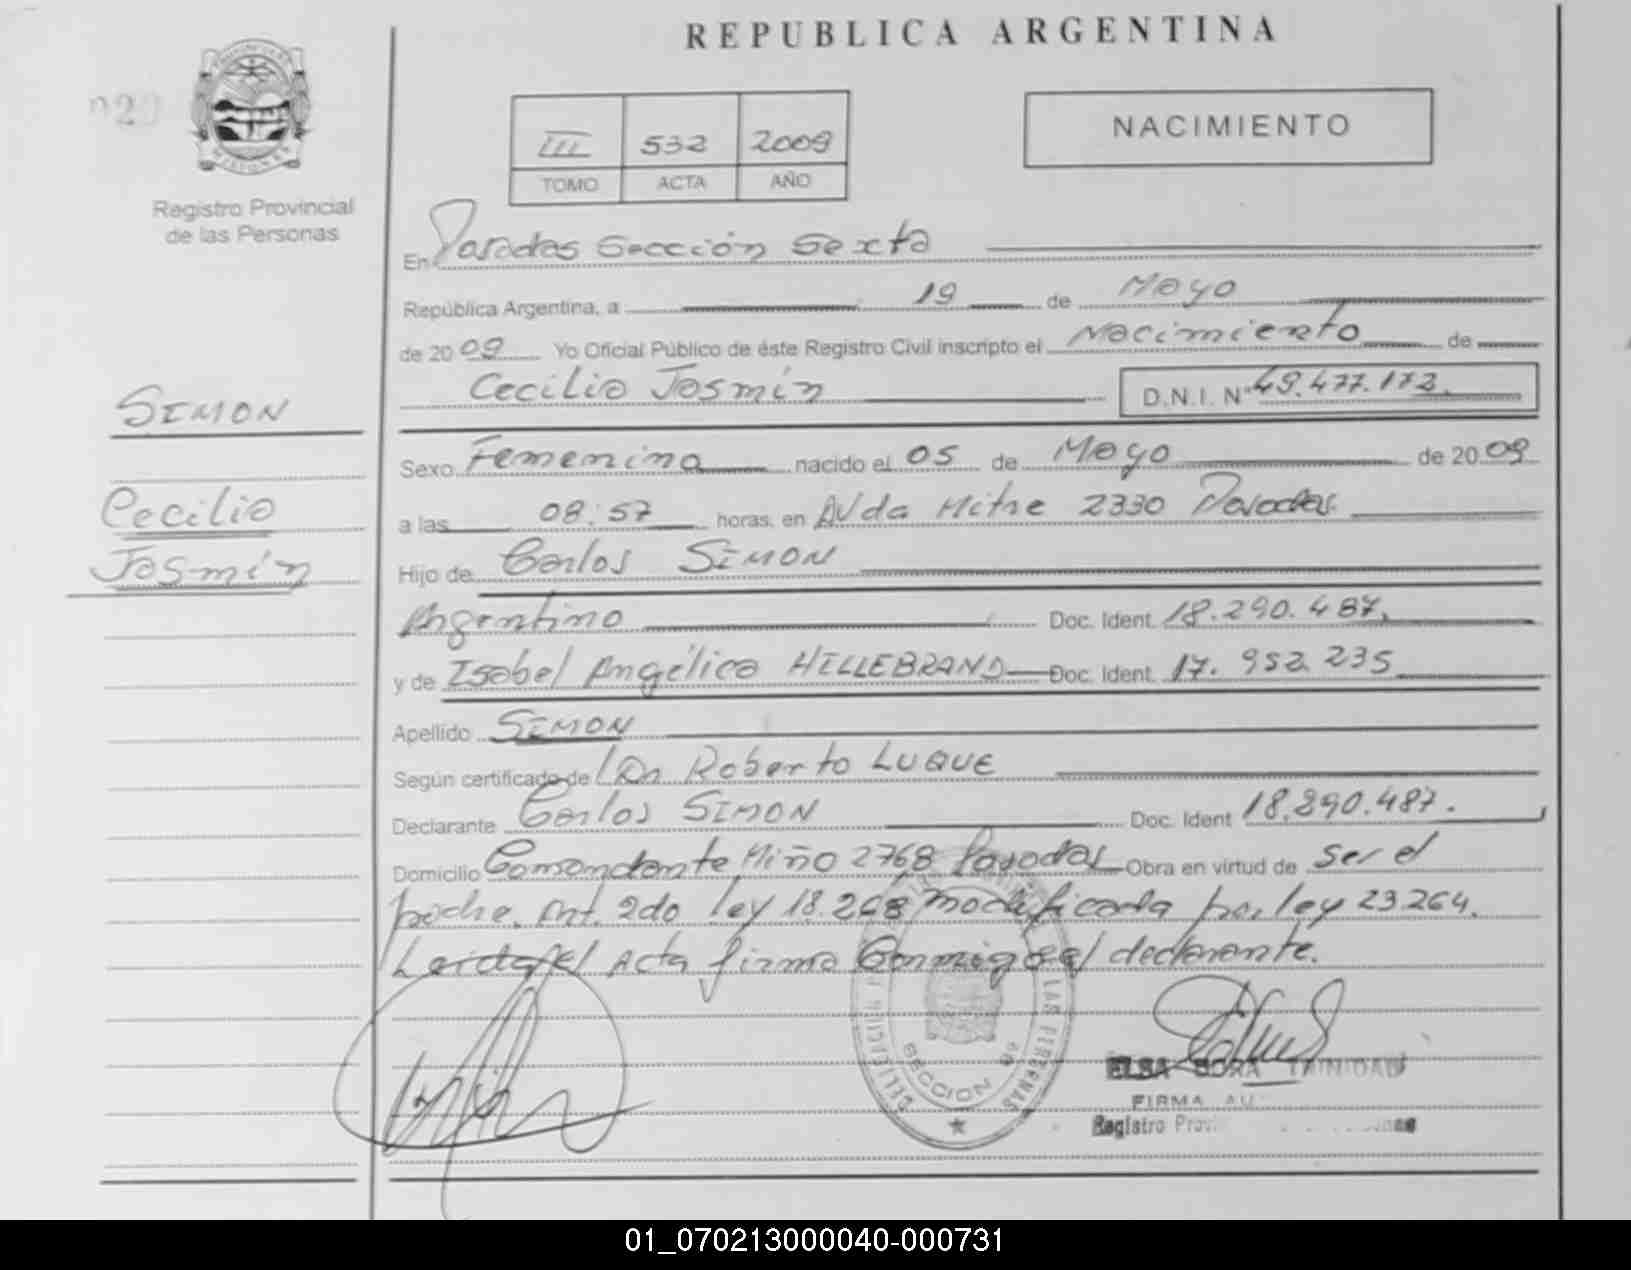 REPUBLICA ARGENTINA
III 532 2009
TOMO ACTA AÑO
NACIMIENTO
Registro Provincial
de las Personas
En Posadas Sección Sexta
República Argentina, a 19 de Mayo
de 2009 Yo Oficial Público de éste Registro Civil inscripto el Nacimiento de
Cecilia Jasmín D.N.I. Nº 49.477.172.
SIMON
Cecilia
Jasmín
Sexo Femenino nacido el 05 de Mayo de 2009
a las 08:57 horas. en AVda Mitre 2330 Posadas.
Hijo de Carlos SIMON
Argentino Doc. Ident. 18.290.487.
y de Isabel Angélica HILLEBRAND Doc. Ident. 17.952.235
Apellido SIMON
Según certificado de Dr Roberto LUQUE
Declarante Carlos SIMON Doc. Ident 18.290.487.
Domicilio Comandante Miño 2768 Posadas Obra en virtud de ser el
padre. Art. 2do ley 18.248 modificada por ley 23264.
Leida el Acta firma Conmigo el declarante.
LAS PERSONAS
SECCION
ELSA DORA TRINIDAD
FIRMA AU
Registro Prov
01_070213000040-000731